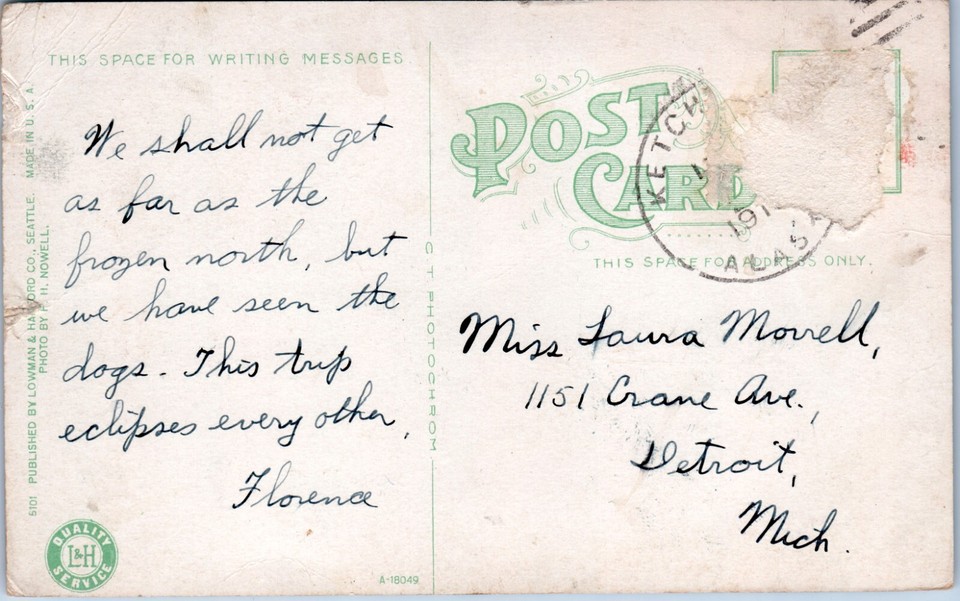 THIS SPACE FOR WRITING MESSAGES.
We shall not get
as far as the
frozen north, but
we have seen the
dogs. This trip
eclipses every other,
Florence
5101 PUBLISHED BY LOWMAN & HANFORD CO., SEATTLE. MADE IN U.S.A.
PHOTO BY F. H. NOWELL.
QUALITY
L&H
SERVICE
A-18049
C T PHOTOCHROM
POST
CARD
KETC
191
ALAS
THIS SPACE FOR ADDRESS ONLY.
Miss Laura Morrell,
1151 Crane Ave.,
Detroit,
Mich.